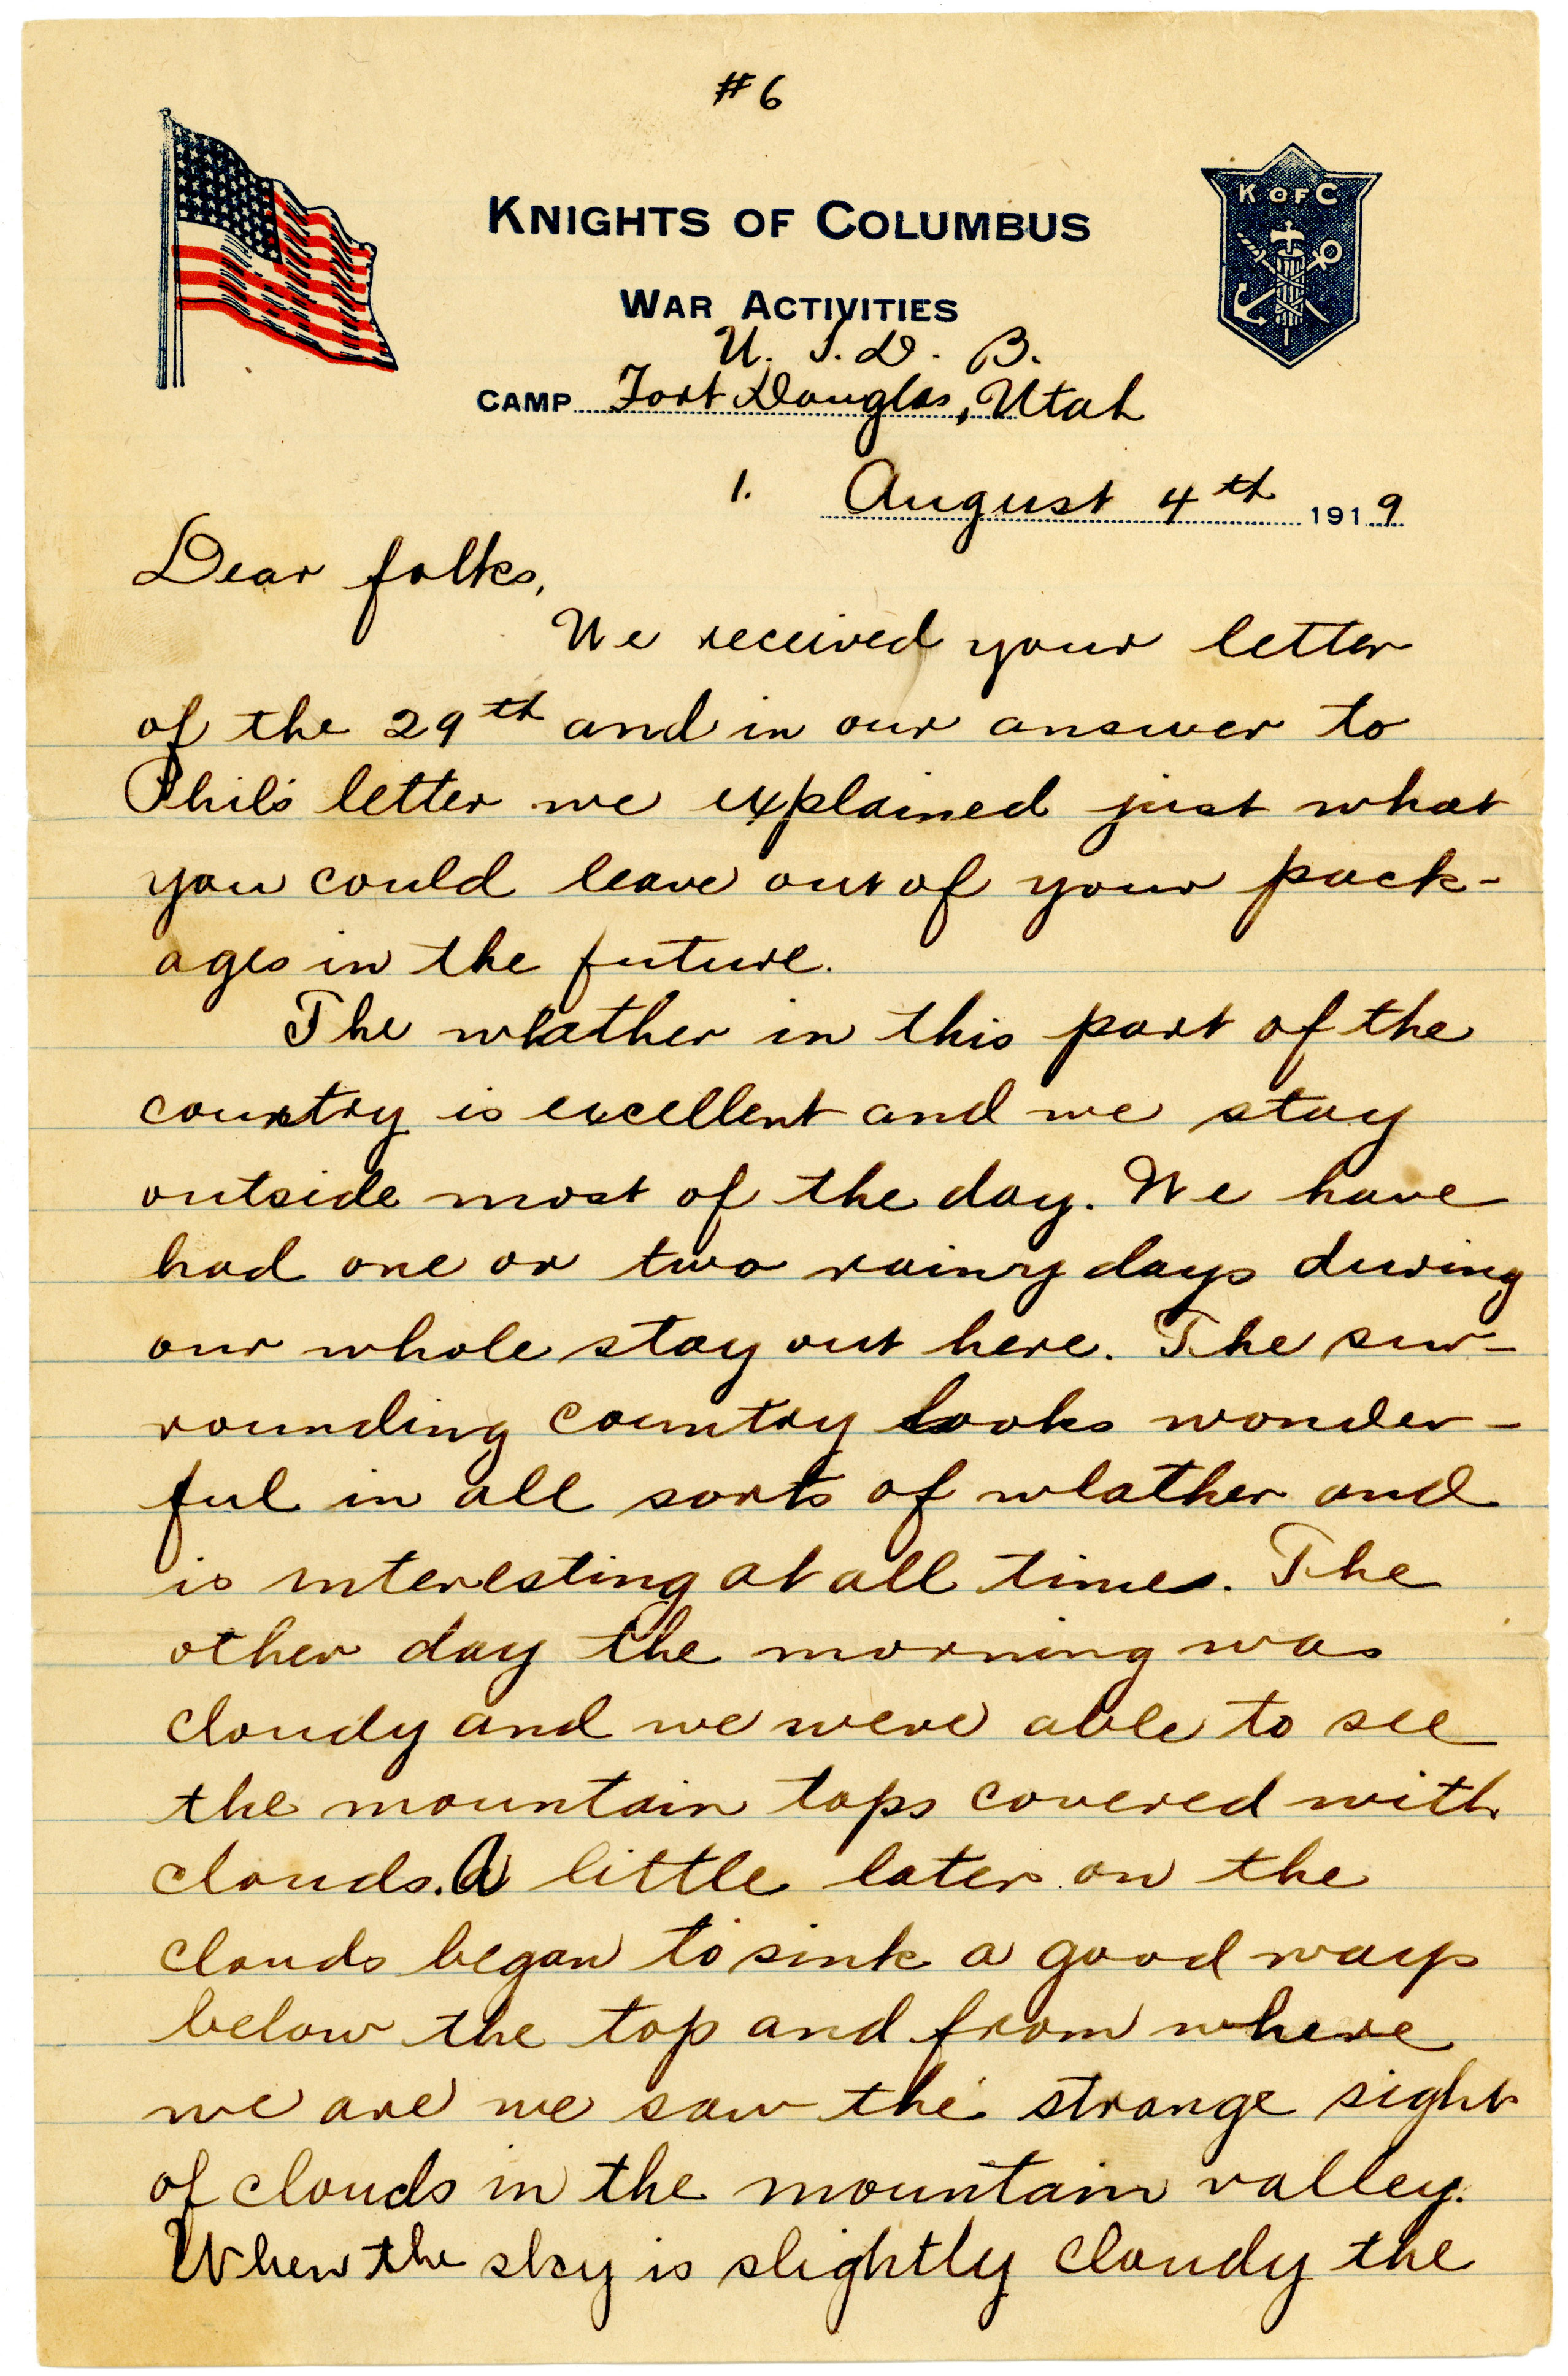 #6
KNIGHTS OF COLUMBUS
K OF C
WAR ACTIVITIES
U. S. D. B.
CAMP Fort Douglas, Utah
1. August 4th 1919
Dear folks,
We received your letter
of the 29th and in our answer to
Phil's letter we explained just what
you could leave out of your pack-
ages in the future.
The weather in this part of the
country is excellent and we stay
outside most of the day. We have
had one or two rainy days during
our whole stay out here. The sur-
rounding country looks wonder-
ful in all sorts of weather and
is interesting at all times. The
other day the morning was
cloudy and we were able to see
the mountain tops covered with
clouds. A little later on the
clouds began to sink a good ways
below the top and from where
we are we saw the strange sight
of clouds in the mountain valley.
When the sky is slightly cloudy the